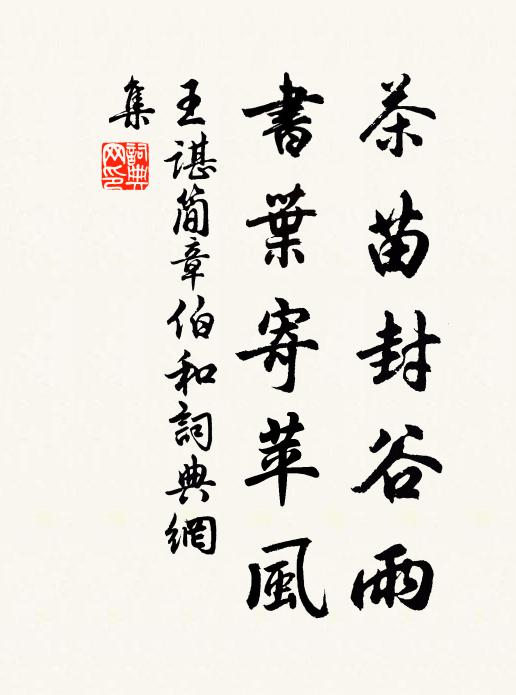 茶苗封谷雨
書葉寄苹風
王諶簡章伯和詞典網
集
詞典
网印